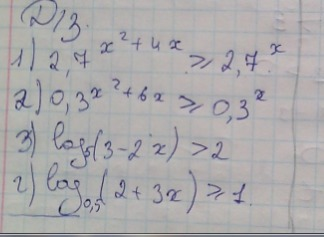 Д/З.
1) 2,7^(x²+4x) ≥ 2,7^x
2) 0,3^(x²+6x) ≥ 0,3^x
3) log₅(3-2x) > 2
г) log₀,₅(2+3x) ≥ 1.